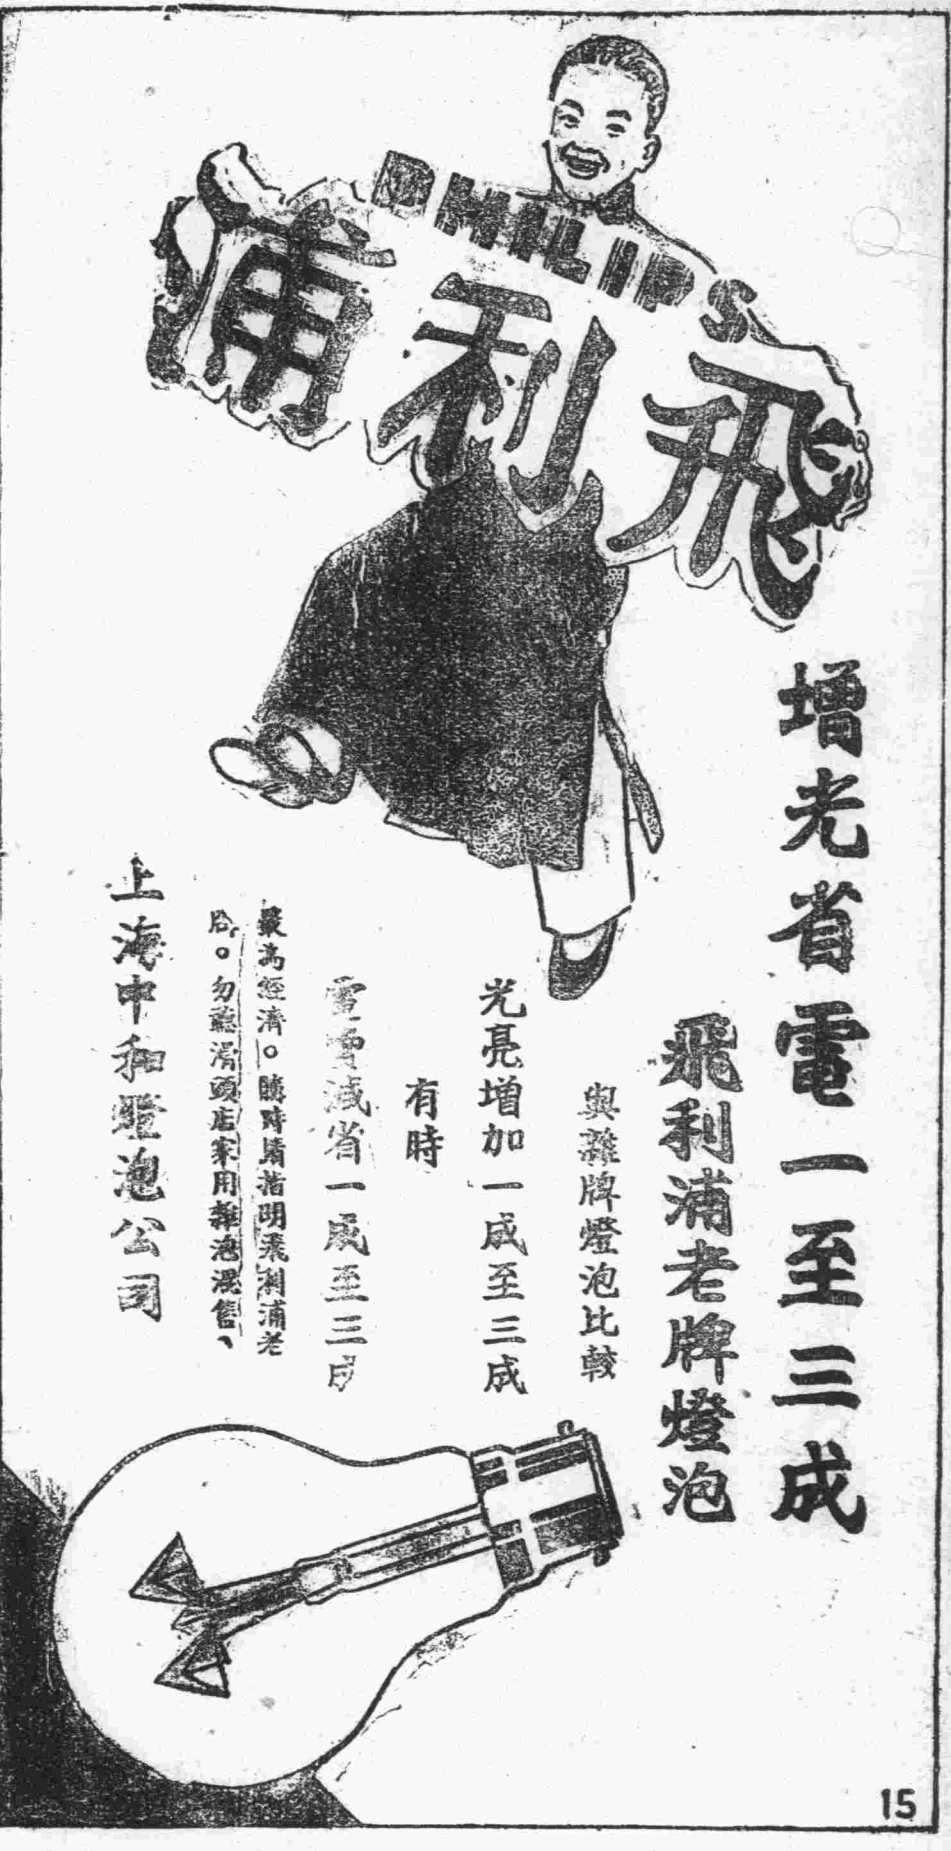 PHILIPS
飛利浦
增光省電一至三成
飛利浦老牌燈泡
與雜牌燈泡比較
光亮增加一成至三成
有時
電費減省一成至三成
最高經濟。購時請指明飛利浦老
牌。勿聽滑頭店家用雜泡混售、
上海中和燈泡公司
15